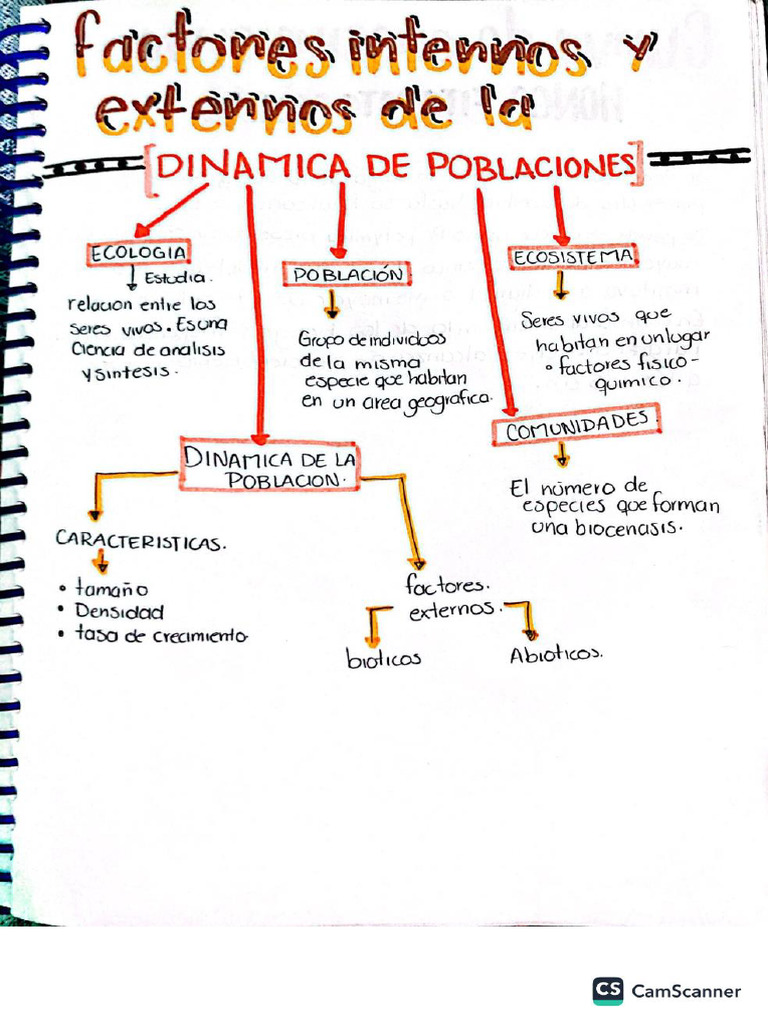 factores internos y
externos de la
[DINAMICA DE POBLACIONES]
ECOLOGIA
Estudia.
relacion entre los
seres vivos. Es una
Ciencia de analisis
y sintesis.
POBLACIÓN.
Grupo de individuos
de la misma
especie que habitan
en un area geografica.
ECOSISTEMA
Seres vivos que
habitan en un lugar
• factores fisico-
quimico.
COMUNIDADES.
El número de
especies que forman
una biocenasis.
DINAMICA DE LA
POBLACION.
CARACTERISTICAS.
• tamaño
• Densidad
• tasa de crecimiento
factores.
externos.
bioticos
Abioticos.
CS CamScanner